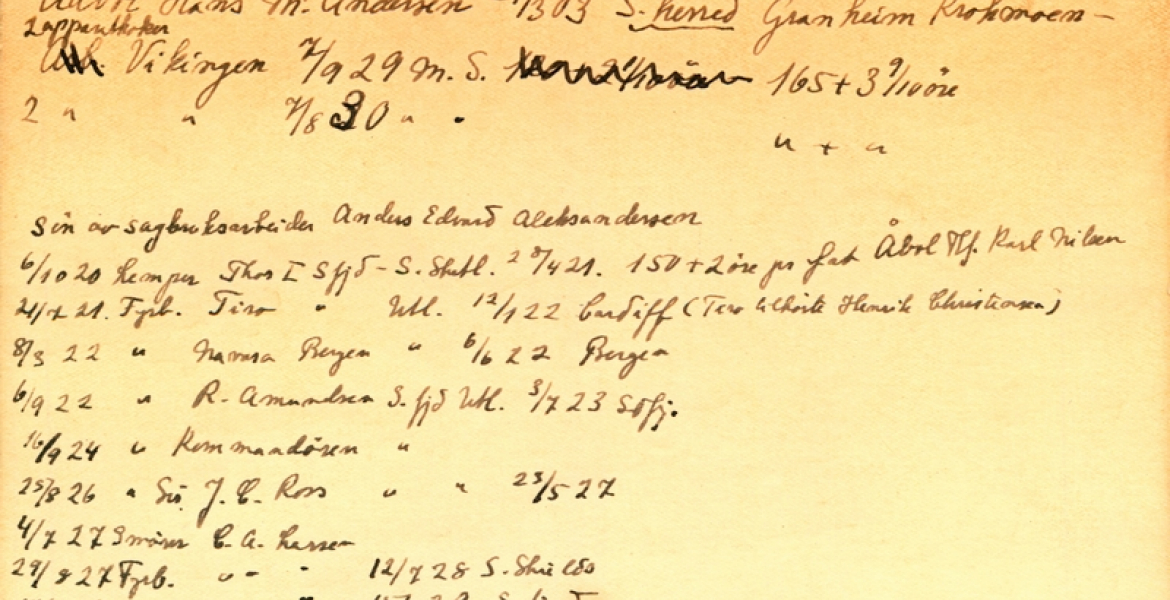 Hans M. Andersen 1303 S. herred Granheim Krokmoen -
Lapparatkoker
Arb. Vikingen 7/9 29 M. S. 165 + 3 9/10 öre
2 " " 7/8 30 " "
" + "
Sön av sagbruksarbeider Anders Edvard Aleksandersen
6/10 20 hemper Thor I Sfjd - S. Shetl. 2 /4 21. 150 + 2 öre pr fat Åbol Karl Nilsen
21/7 21. Fyrb. Tiro " Utl. 12/1 22 Cardiff (Tiro tilhörte Henrik Christensen)
8/3 22 " Navarra Bergen " 6/6 22 Bergen
6/9 22 " R. Amundsen S. fjd Utl. 3/7 23 Sdfj.
16/9 24 " Kommandören "
25/8 26 " Sir J. C. Ross " " 23/5 27
4/7 27 Smörer C. A. Larsen
29/8 27 Fyrb. " - " 12/7 28 S. Shields